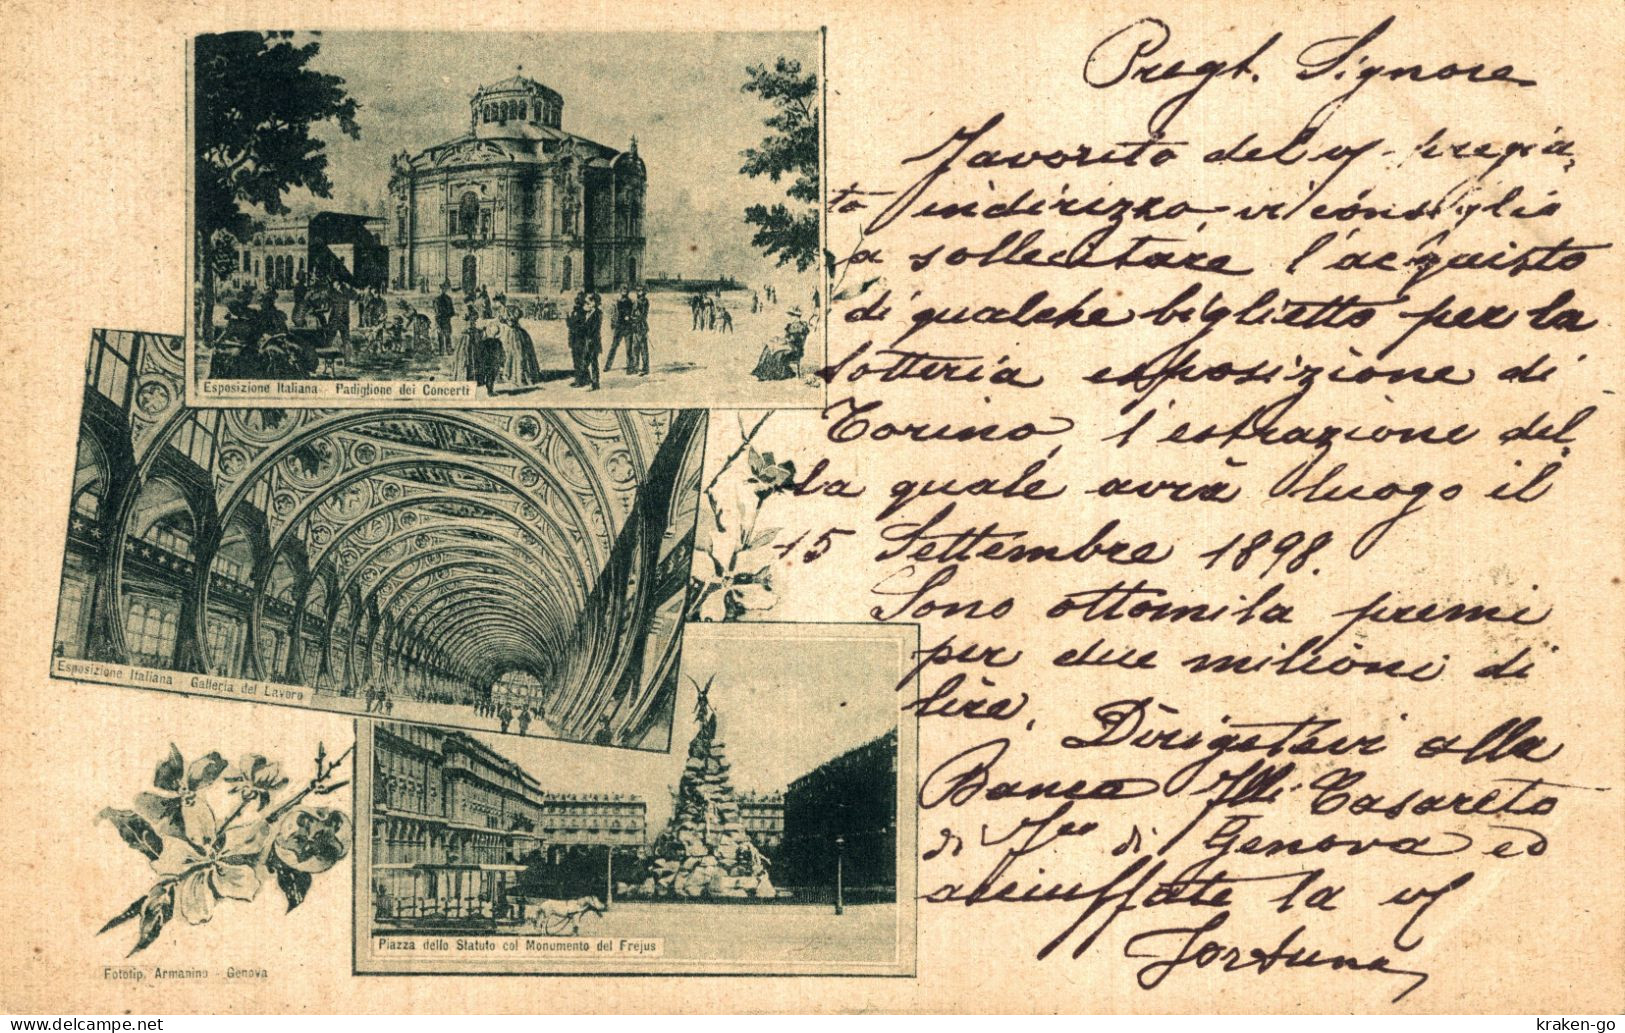 Pregt. Signore
Favorito del vs. pregia
to indirizzo vi consiglio
a sollecitare l'acquisto
di qualche biglietto per la
Lotteria esposizione di
Torino, l'estrazione del
la quale avrà luogo il
15 Settembre 1898.
Sono ottomila premi
per due milioni di
lire. Dirigetevi alla
Banca Flli Casareto
di Fco di Genova ed
acciuffate la vs
Fortuna
Esposizione Italiana - Padiglione dei Concerti
Esposizione Italiana - Galleria del Lavoro
Piazza dello Statuto col Monumento del Frejus
Fototip. Armanino - Genova
kraken-go